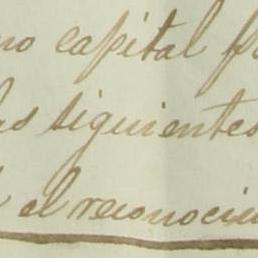 no capital
siguientes
el reconoci